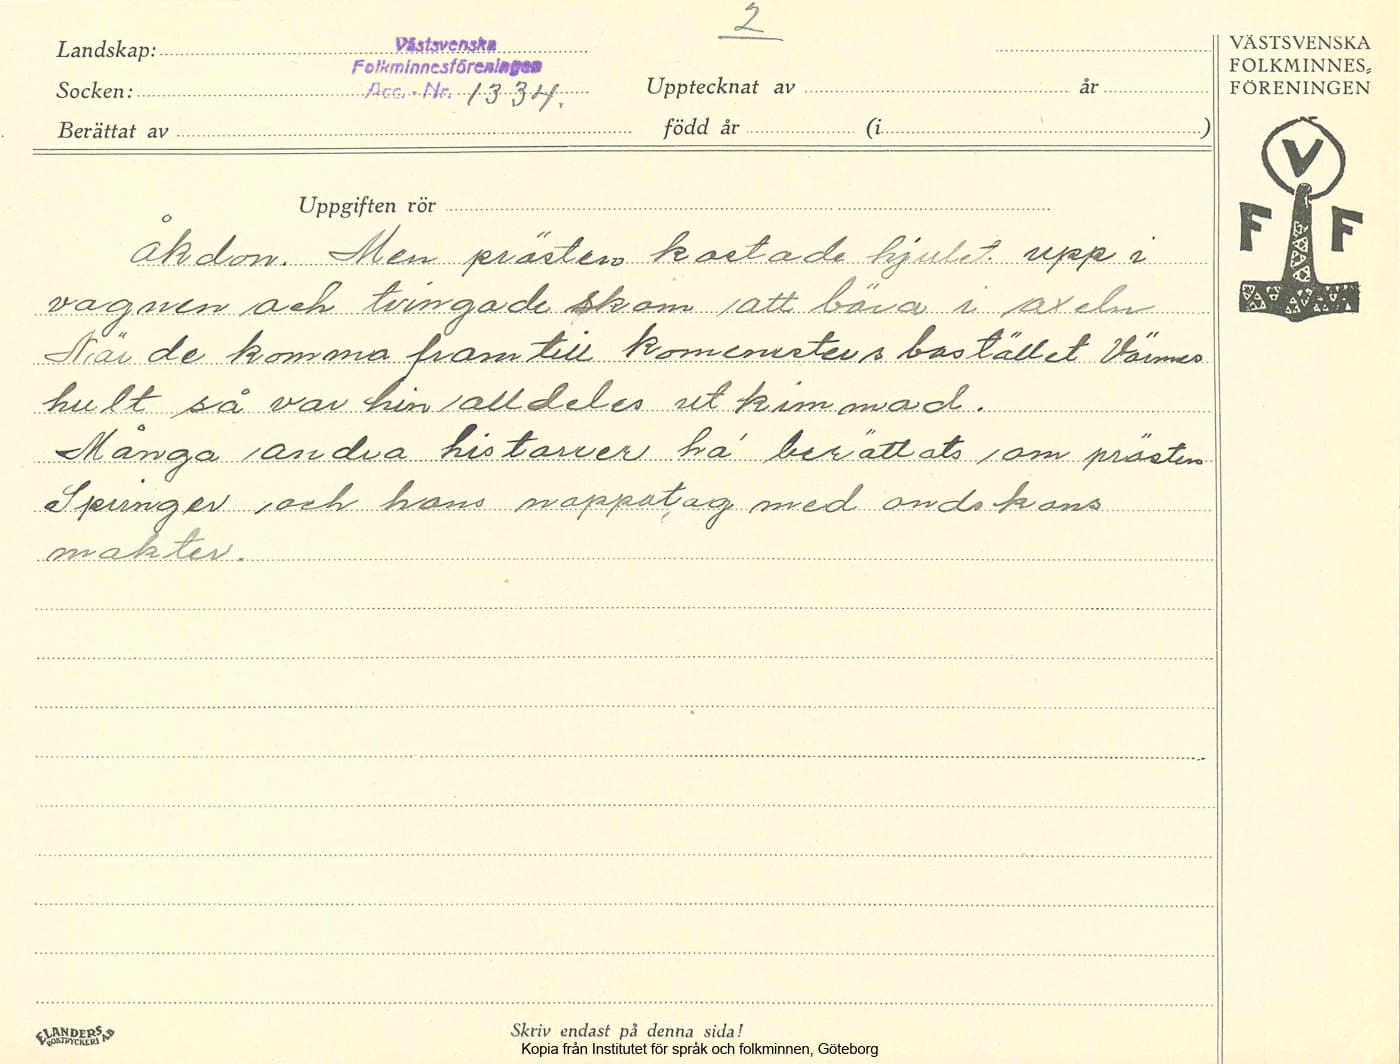 2
Landskap:
Västsvenska
Folkminnesföreningen
Socken:
Acc. - Nr. 1334.
Upptecknat av
år
Berättat av
född år
(i
)
VÄSTSVENSKA
FOLKMINNES-
FÖRENINGEN
V
F F
Uppgiften rör
åkdon. Men prästen kastade hjulet upp i
vagnen och tvingade skam att bära i axeln
När de komma fram till bostället Värnes
hult så var hin alldeles utkimmad.
Många andra historier ha berättats om prästen
Springer och hans nappatag med ondskans
makter.
ELANDERS
BOKTRYCKERI AB
Skriv endast på denna sida!
Kopia från Institutet för språk och folkminnen, Göteborg